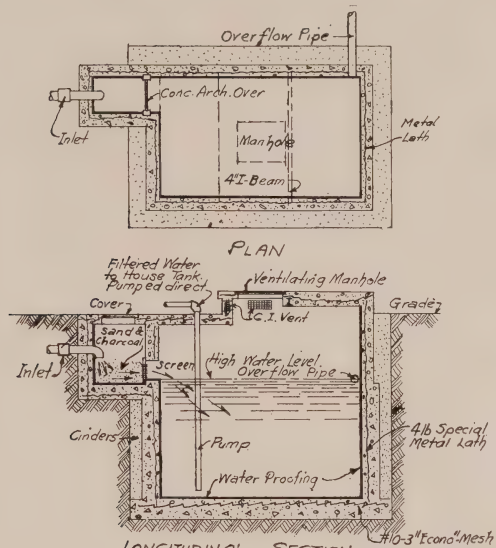 Overflow Pipe
Conc. Arch. Over
Inlet
Manhole
Metal
Lath
4"I-Beam
PLAN
Filtered Water
to House Tank.
Pumped direct
Ventilating Manhole
Cover
Grade
C.I. Vent
Sand &
Charcoal
Inlet
Screen
High Water Level
Overflow Pipe
Cinders
Pump
4lb Special
Metal Lath
Water Proofing
#10-3"Econo"-Mesh
LONGITUDINAL SECTION